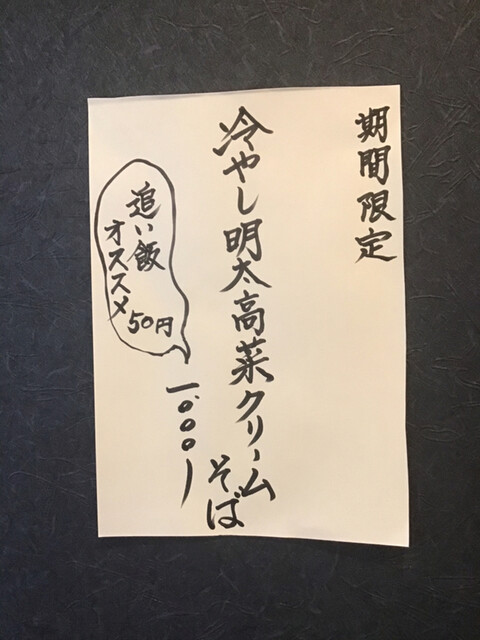 期間限定
冷やし明太高菜クリーム
そば
一.〇〇〇ー
追い飯
オススメ
50円